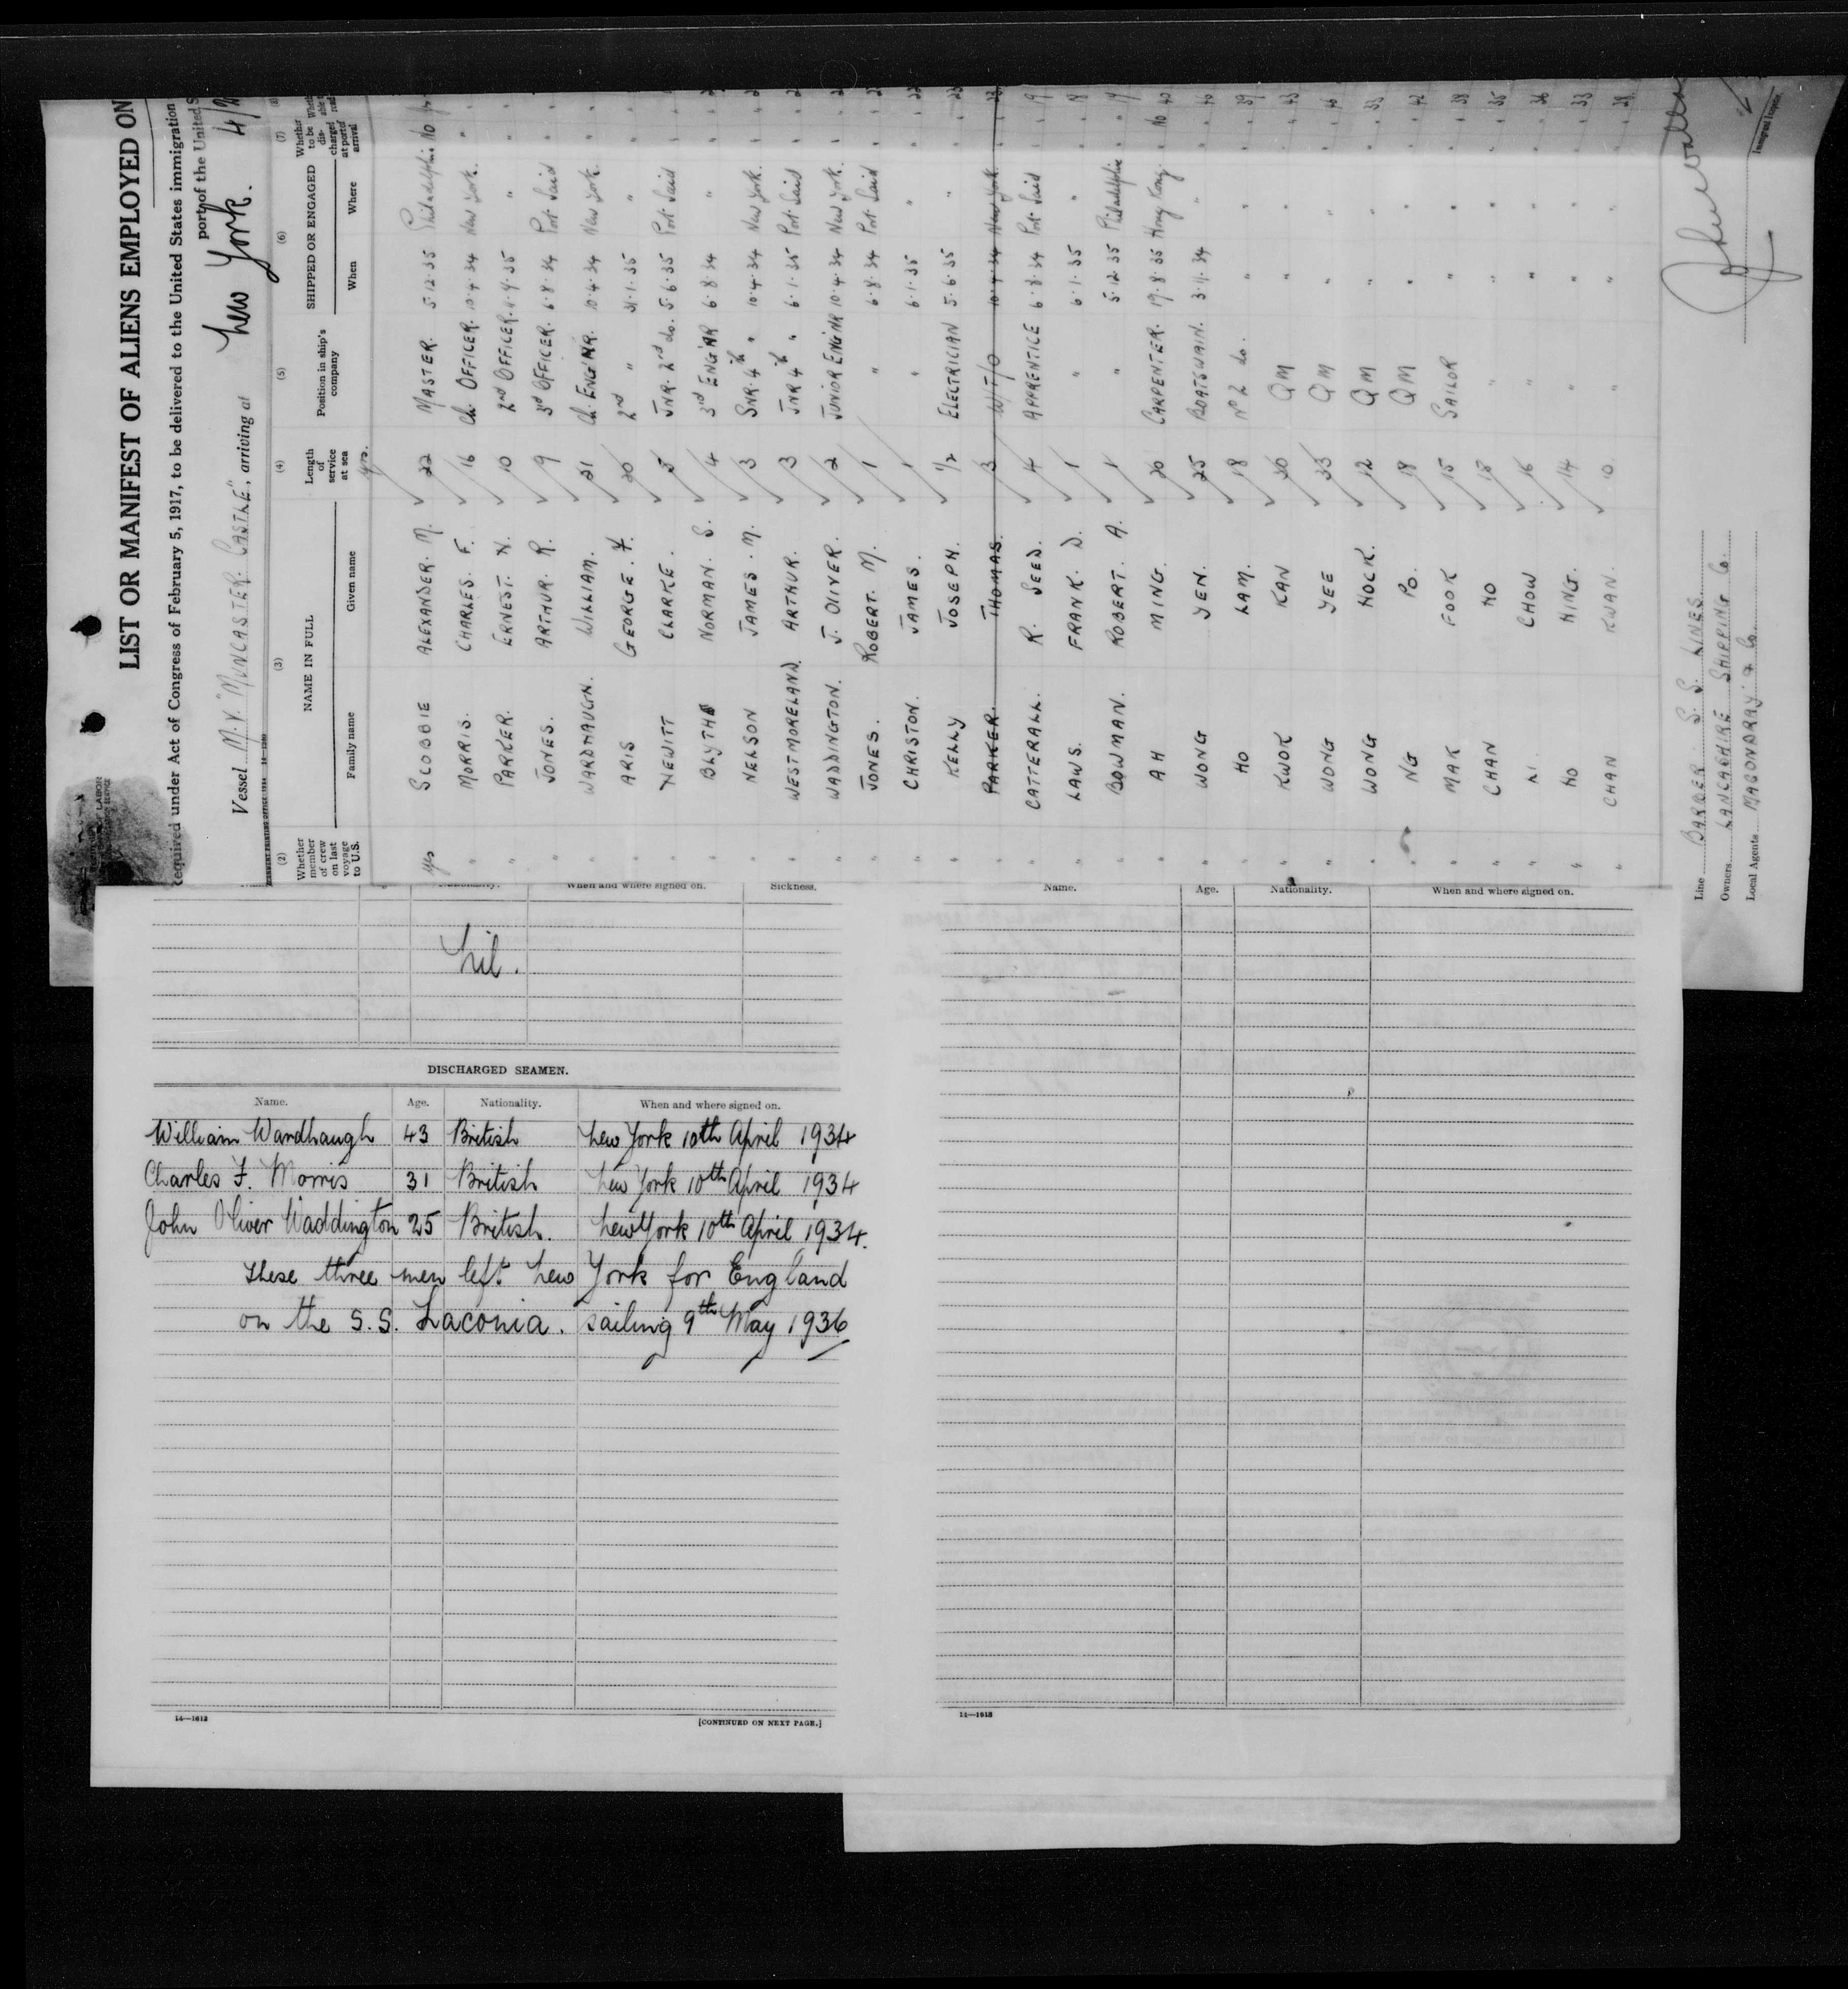 LIST OR MANIFEST OF ALIENS EMPLOYED ON
Required under Act of Congress of February 5, 1917, to be delivered to the United States immigration
port of the United S
Vessel M.V. "MUNCASTER CASTLE", arriving at New York. 4/
(2) (3) (4) (5) (6) (7)
Whether member of crew on last voyage to U.S. NAME IN FULL Family name Given name Length of service at sea Position in ship's company SHIPPED OR ENGAGED When Where Whether to be discharged at port of arrival
yrs.
yes SCOBBIE ALEXANDER. M. 22 MASTER. 5.12.35 Philadelphia No
" MORRIS. CHARLES. F. 16 Ch. OFFICER. 10.4.34 New York. "
" PARKER. ERNEST. N. 10 2nd OFFICER. " "
" JONES. ARTHUR. R. 9 3d OFFICER. 6.8.34 Port Said "
" WARDHAUGH. WILLIAM. 21 Ch. ENG'NR. 10.4.34 New York. "
" ARIS GEORGE. F. 20 2nd " 31.1.35 " "
" HEWITT CLARKE. 5 JNR. 2nd do. 5.6.35 Port Said "
" BLYTHE NORMAN. S. 4 3rd ENG'NR 6.8.34 " "
" NELSON JAMES. M. 3 SNR. 4th " 10.4.34 New York. "
" WESTMORELAND. ARTHUR. 3 JNR 4th " 6.1.35 Port Said "
" WADDINGTON. J. OLIVER. 2 JUNIOR ENG'NR 10.4.34 New York. "
" JONES. ROBERT. M. 1 " 6.8.34 Port Said "
" CHRISTON. JAMES. 1 " 6.1.35 " " 22
" KELLY JOSEPH. 1/2 ELECTRICIAN 5.6.35 " " 23
" PARKER. THOMAS. 3 W/T/O 10.4.34 New York "
" CATTERALL. R. SEED. 4 APPRENTICE 6.8.34 Port Said " 19
" LAWS. FRANK. D. 1 " 6.1.35 " " 18
" BOWMAN. ROBERT. A. 1 " 5.12.35 Philadelphia " 19
" AH MING. 20 CARPENTER. 19.8.35 Hong Kong. No 40
" WONG YEN. 25 BOATSWAIN. 3.11.34 " " 46
" HO LAM. 18 No 2 do. " " " 39
" KWOK KAN 20 QM " " " 43
" WONG YEE 23 QM " " " 46
" WONG HOCK. 12 QM " " " 33
" NG PO. 18 QM " " " 42
" MAK FOOK 15 SAILOR " " " 38
" CHAN HO 18 " " " " 35
" LI. CHOW 16 " " " " 36
" HO HING. 14 " " " " 33
" CHAN KWAN. 10 " " " "
Line BARBER S. S. LINES.
Owners LANCASHIRE SHIPPING Co.
Local Agents MACONDRAY & Co.
Immigrant Inspector.
Nationality. When and where signed on. Sickness.
Nil.
DISCHARGED SEAMEN.
Name. Age. Nationality. When and where signed on.
William Wardhaugh 43 British New York 10th April 1934
Charles F. Morris 31 British New York 10th April 1934
John Oliver Waddington 25 British. New York 10th April 1934.
These three men left New York for England
on the S.S. Laconia. sailing 9th May 1936
14—1612 [CONTINUED ON NEXT PAGE.]
Name. Age. Nationality. When and where signed on.